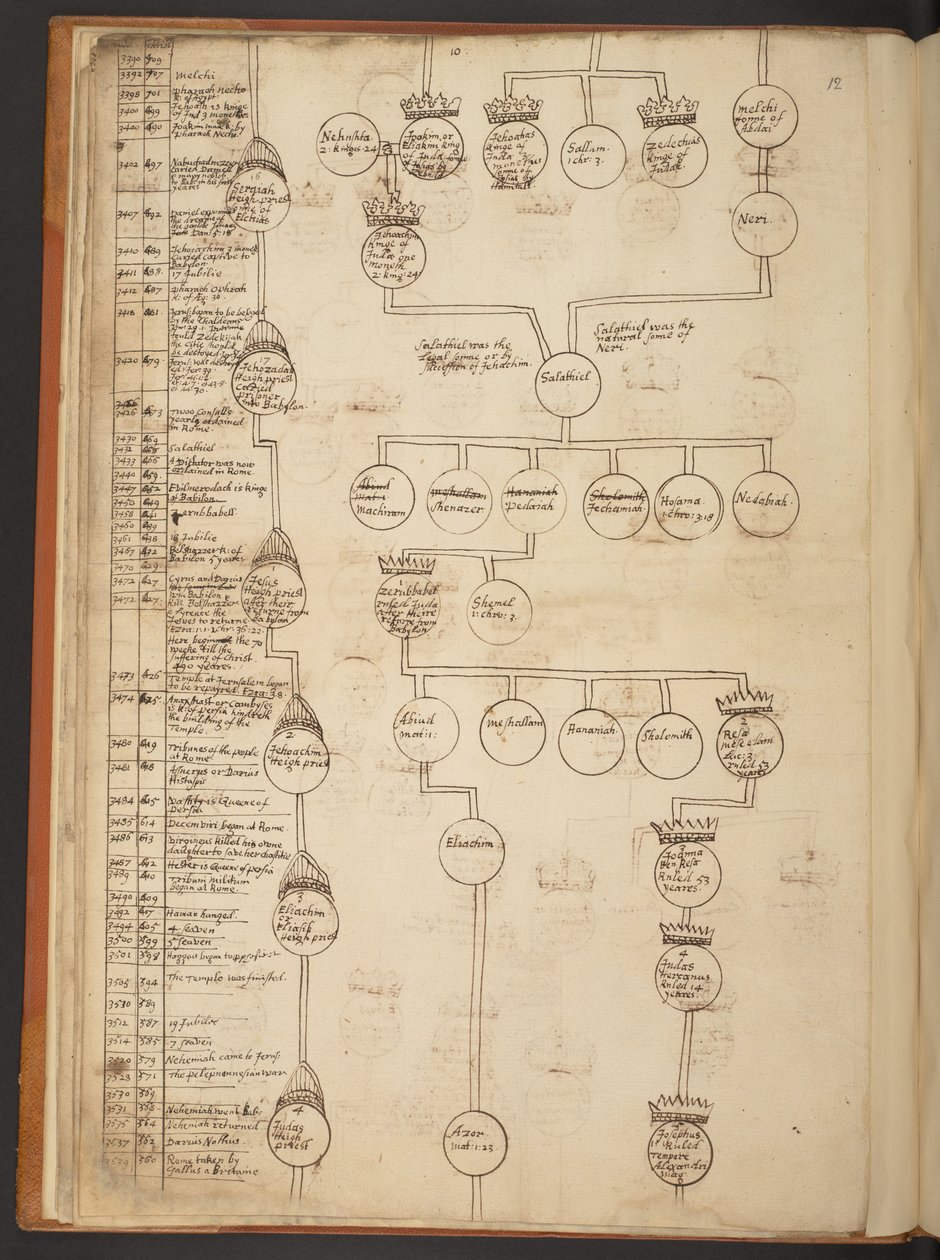 10.
12
3390 709
3392 707 Melchi
3398 701 Pharaoh Necho
K: of Ægypt
3400 699 Jehoah is kinge
of Jud 3 monethes
3400 690 Joakim made by
Pharaoh Necho.
3402 697 Nabuchadnezzer
caried Daniell
to Bab: in his first
yeares
3407 692 Daniel expound
the dreame of
Dan: 5:18
3410 689 Jehoiachim 3 moneth
Caried captive to
Babylon.
3411 688 17 Jubilie
3412 687 Pharaoh Ophrah
K: of Æg: 30.
3418 681 Jerus: began to be beseged
by the Chaldeans
tould Zedekiah
the Citie should
be destroyed
3420 679
3426 673 Twoo Consalls
yearly ordained
in Rome.
3430 669
3431 668 Salathiel
3433 666 A Dictator was now
ordained in Rome.
3440 659
3447 652 Evilmerodach is kinge
of Babilon
3450 649
3458 641 Zerubbabell
3460 639
3461 638 18 Jubilie
3467 632 Belshazzer K: of
Babilon 5 yeares
3470 629
3472 627 Cyrus and Darius
win Babilon &
kill Belshazzer
3472 627 & Lycence the
Jewes to returne
Ezra: 1:1. 2 Chr: 36:22.
Here begin the 70
weeke till the
suffering of Christ.
490 yeares.
3473 626 Temple at Jerusalem began
to be repayred. Ezra: 3.8.
3474 625 Artaxhiast or Cambyses
is K: of Persia hindreth
the building of the
Temple.
3480 619 Tribunes of the people
at Rome
3481 618 Assuerus or Darius
Histaspis
3484 615 Vashty is Queene of
Persia
3485 614 Decemviri began at Rome.
3486 613 Virgineus killed his owne
daughter to save her chastitie
3487 612 Hester is Queene of Persia
3489 610 Tribuni militum
began at Rome.
3490 609
3492 607 Haman hanged.
3494 605 4 seaven
3500 599 5 seaven
3501 598 Haggae began to
3505 594 The Temple was finished.
3510 589
3512 587 19 Jubilie
3514 585 7 seaven
3520 579 Nehemiah came to Jerus:
3528 571 The peleponnesian warr
3530 569
3531 568 Nehemiah went Bab:
3535 564 Nehemiah returned
3537 562 Darius Nothus.
3539 560 Rome taken by
Gallus a Britaine
16
Seraiah
Heigh priest
sonne of
Elchias
17
Jehozadac
Heigh priest
Caried
prisoner
into Babylon.
1
Jesus
Heigh priest
after their
returne from
Babylon
2
Jehoachim
Heigh priest
3
Eliachim
or
Eliasib
Heigh priest
4
Judas
Heigh
priest
Nehushta
2: kinges: 24
Joakim, or
Eliakim king
of Juda sonne
of Josias by
Jehoahas
kinge of
Juda 3
monethes
sonne of
Josias by
Hamital.
Sallum.
1 chr: 3.
Zedechias
kinge of
Judah
Melchi
sonne of
Abdai
Jehoachin
kinge of
Juda one
moneth
2: king: 24
Neri.
Salathiel was the
legal sonne or by
succession of Jehachim.
Salathiel was the
natural sonne of
Neri.
Salathiel
Abiud
mat: 1
Machiram
meshallam
Shenazer
Hananiah
Pedaiah
Sholomith
Jechamiah
Hosama.
1 chro: 3:18
Nedabiah.
1
Zerubbabel
ruled Juda
after theire
returne from
Babylon
Shemel
1: chro: 3.
Abiud
mat: 1:
Meshallam
Hananiah.
Sholomith
2
Resa
mesalam
Luc: 3:
ruled 53
yeares
Eliachim
3
Joanna
Ben Resa
Ruled 53
yeares.
4
Judas
Hercanus
Ruled 14
yeares.
Azor
mat: 1:23
5
Josephus
Ruled
Tempore
Alexandri
mag: